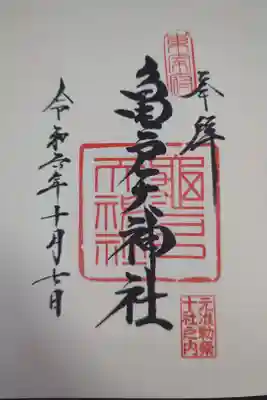 奉拝
東宰府
亀戸天神社
亀戸天神社
元准勅祭
十社之内
令和六年十月七日